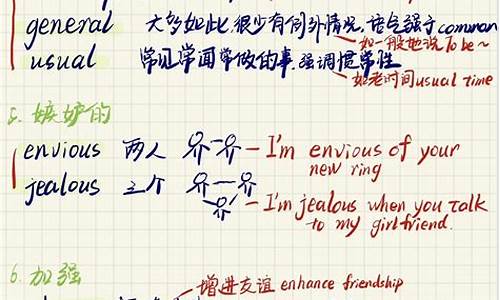 general 大多如此，很少有例外情况，语气强于common
如一般地说 To be ~
usual 常见常闻常做的事，强调惯常性
如老时间 usual time
5. 嫉妒的
envious 两人 — I'm envious of your new ring
jealous 三个 — I'm jealous when you talk to my girlfriend.
6. 加强
增进友谊 enhance friendship